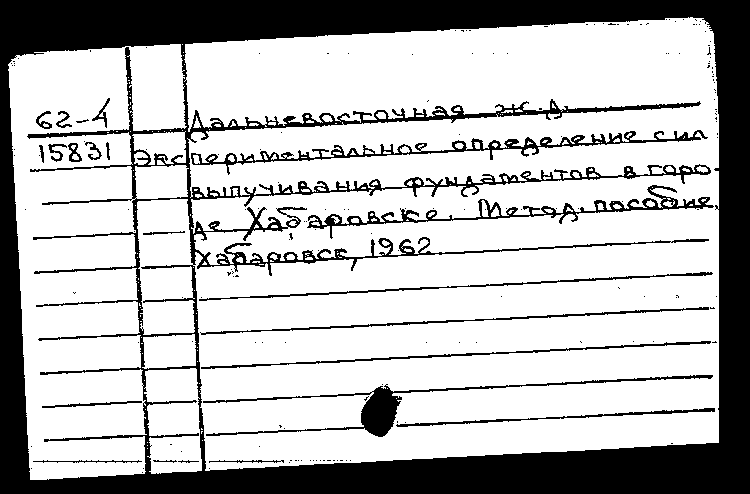 62-4 Дальневосточная ж.д.
15831 Экспериментальное определение сил
выпучивания фундаментов в горо-
де Хабаровске. Метод. пособие.
Хабаровск, 1962.